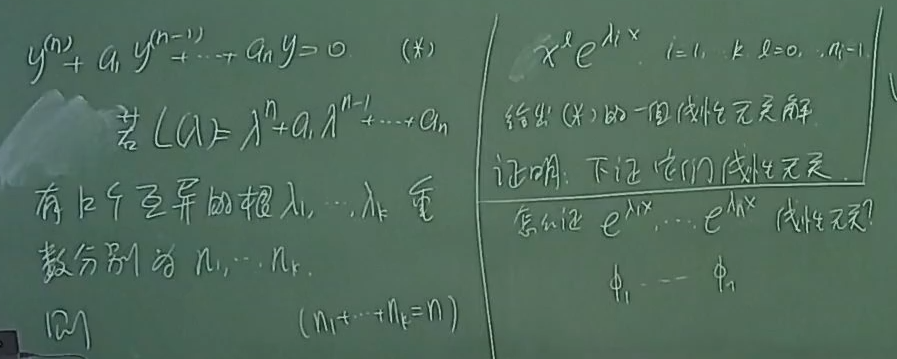 y⁽ⁿ⁾ + a₁ y⁽ⁿ⁻¹⁾ + ⋯ + aₙ y = 0 (*)
若 L(λ) = λⁿ + a₁ λⁿ⁻¹ + ⋯ + aₙ
有 k 个互异的根 λ₁, ⋯, λₖ 重
数分别为 n₁, ⋯ nₖ.
则 (n₁ + ⋯ + nₖ = n)
xˡ e^{λᵢx} i=1, k l=0, , nᵢ-1
给出 (*) 的一组线性无关解
证明: 下证它们线性无关
怎么证 e^{λ₁x}, ⋯ e^{λₙx} 线性无关?
ϕ₁ ⋯ ϕₙ